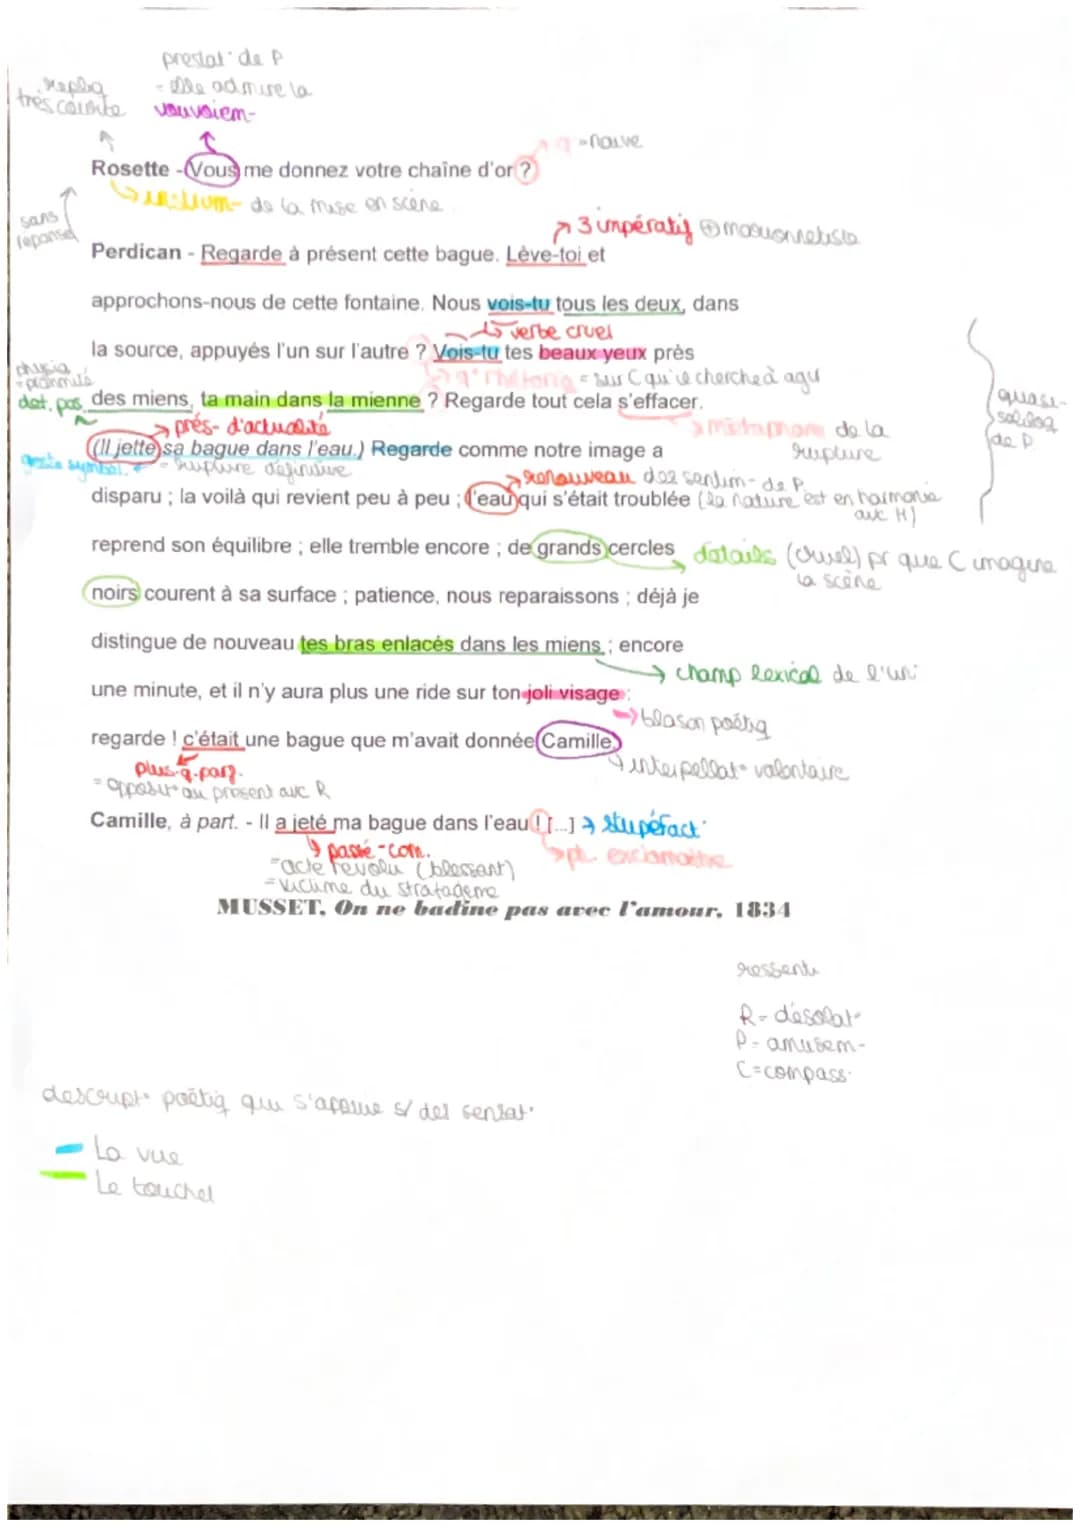 prestat° de P
répliq
très courte
= elle admire la
vouvoiem-
q° = naïve
Rosette - Vous me donnez votre chaîne d'or ?
de la mise en scène
sans
réponse
3 impératif ⊕ marionnetiste
Perdican - Regarde à présent cette bague. Lève-toi et
approchons-nous de cette fontaine. Nous vois-tu tous les deux, dans
verbe cruel
la source, appuyés l'un sur l'autre ? Vois-tu tes beaux yeux près
physiq
= proximité
q° rhétoriq = sur C qu'il cherche à agir
det. pos.
des miens, ta main dans la mienne ? Regarde tout cela s'effacer.
quasi-
soliloq
de P
prés- d'actualité
métaphore de la
rupture
(Il jette sa bague dans l'eau.) Regarde comme notre image a
geste symbol.
= rupture définitive
renouveau des sentim- de P
disparu ; la voilà qui revient peu à peu ; l'eau qui s'était troublée
(la nature est en harmonie
avec H)
reprend son équilibre ; elle tremble encore ; de grands cercles
détails (cruel) pr que C imagine
la scène
noirs courent à sa surface ; patience, nous reparaissons ; déjà je
distingue de nouveau tes bras enlacés dans les miens ; encore
champ lexical de l'uni°
une minute, et il n'y aura plus une ride sur ton joli visage :
blason poétiq
regarde ! c'était une bague que m'avait donnée Camille.
interpellat° volontaire
plus-q-parf.
= opposit° au présent avec R
Camille, à part. - Il a jeté ma bague dans l'eau ! [...]
stupéfact°
passé-com.
pt. exclamatire
= acte révolu (blessant)
= victime du stratagème
MUSSET, On ne badine pas avec l'amour, 1834
ressenti
R = désolat°
P = amusem-
C = compass°
descript° poétiq qui s'appuie s/ des sensat°
La vue
Le toucher